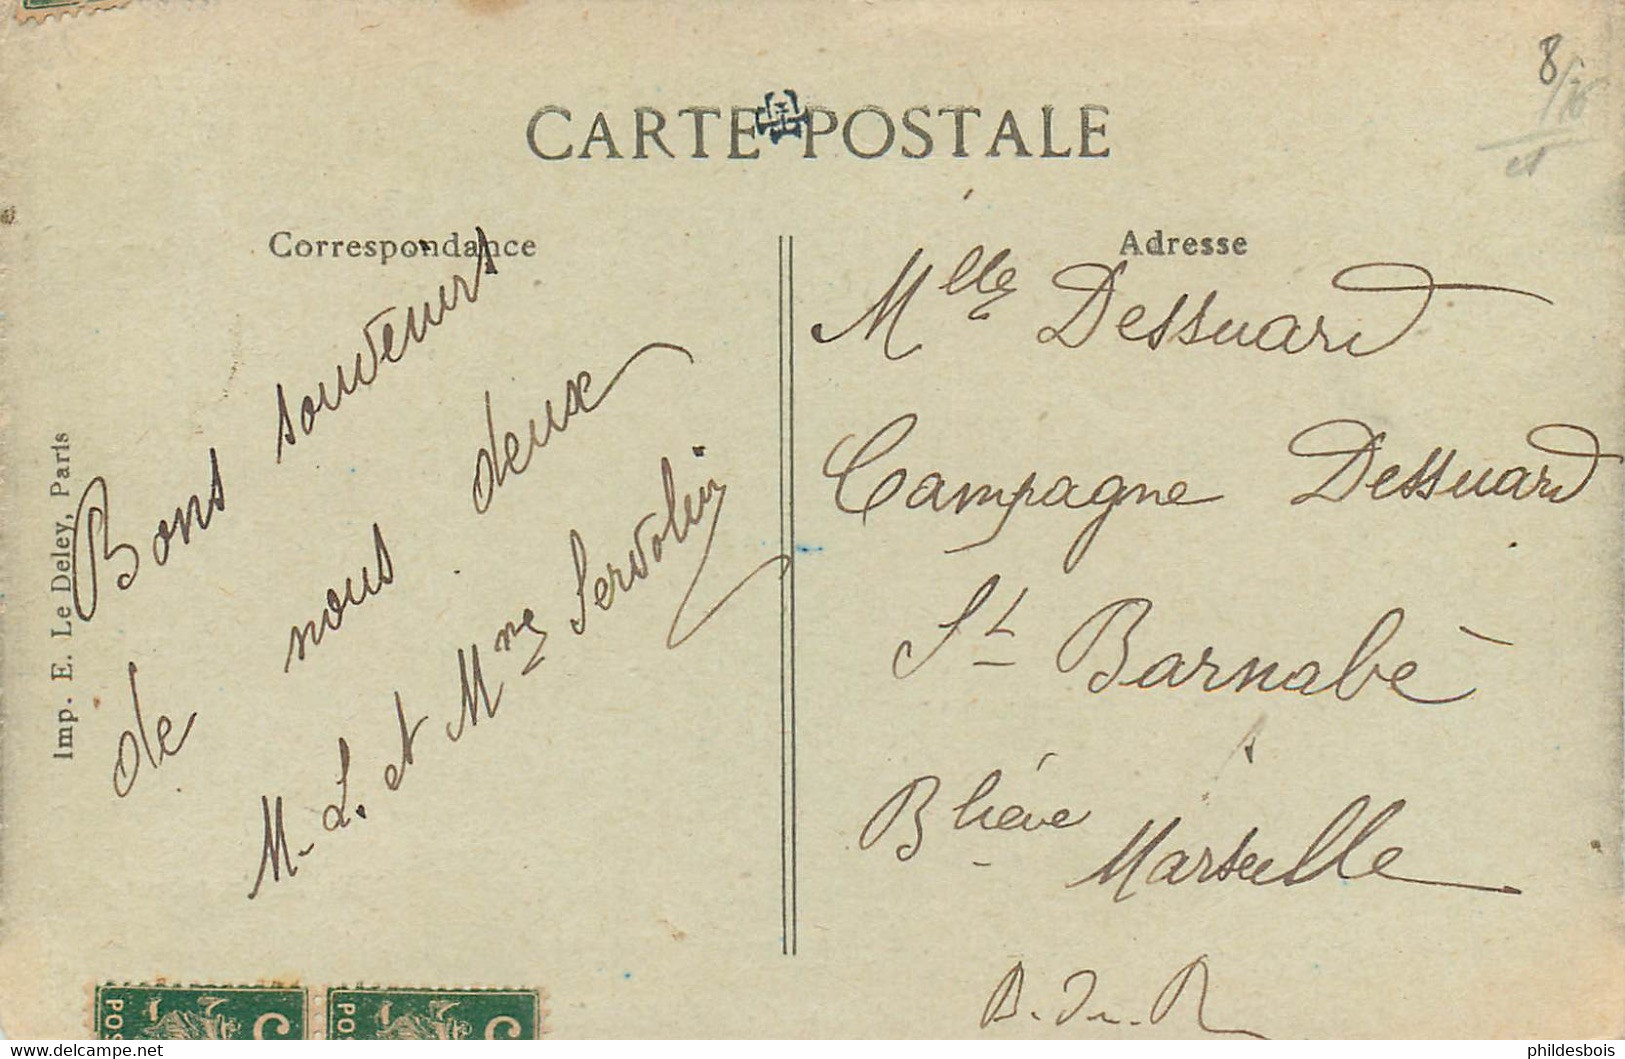 8/76
CARTE POSTALE
Correspondance
Adresse
Bons souvenirs
de nous deux
M. L. et Mme Servolin
Mlle Dessuard
Campagne Dessuard
St Barnabé
Blieue
Marseille
B. du. R
Imp. E. Le Deley, Paris
POS
5
POS
5
delcampe.net
phildesbois